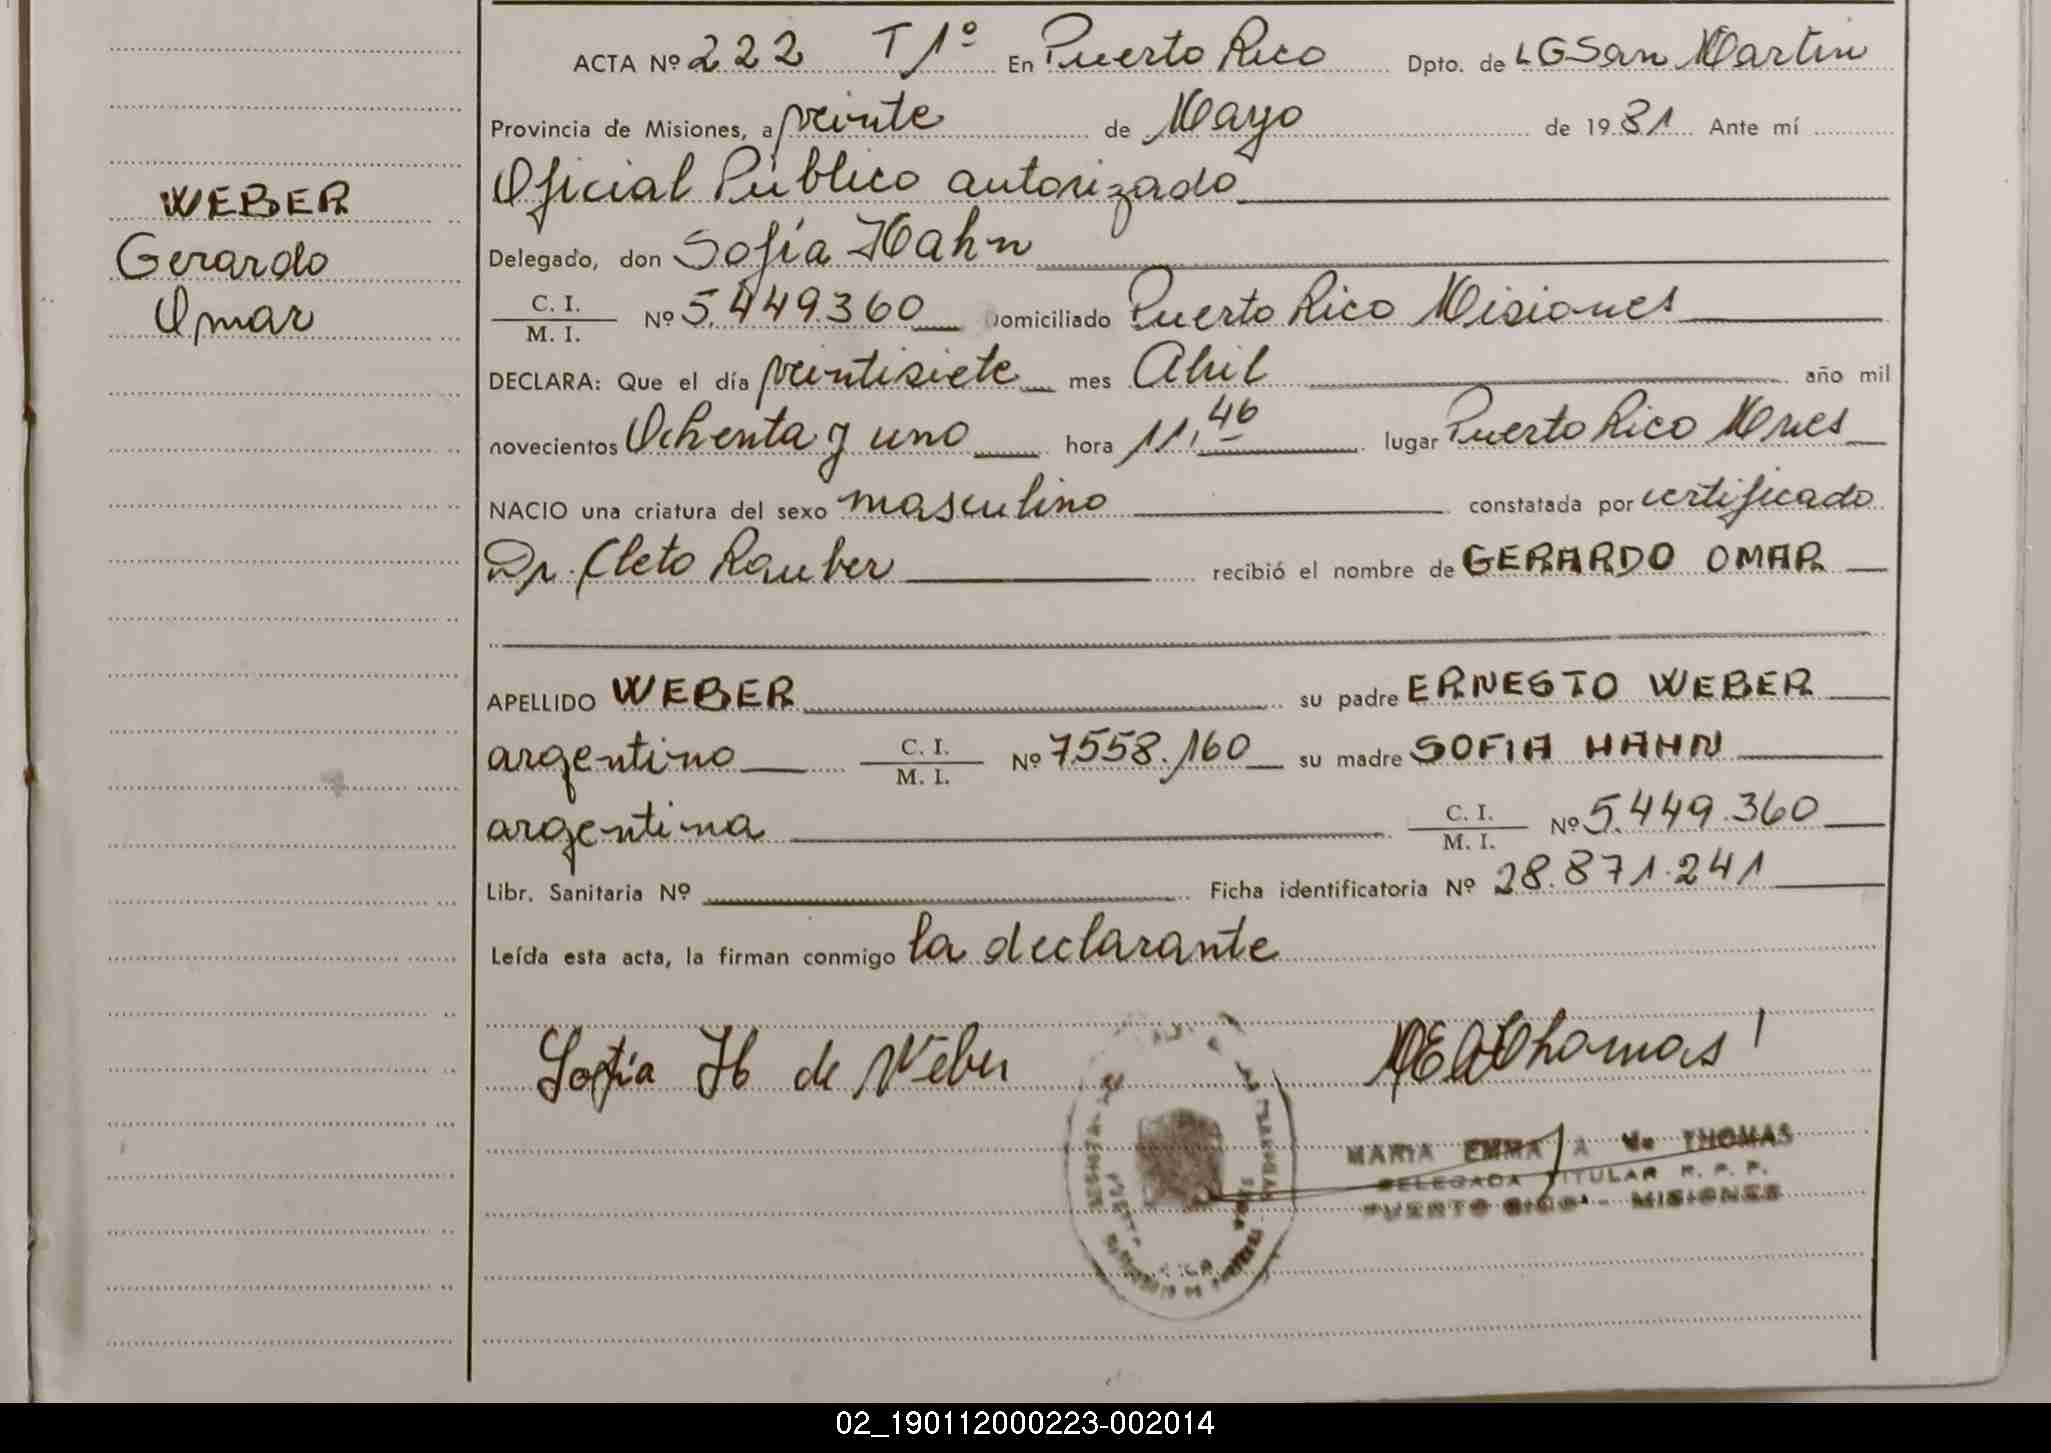 ACTA Nº 222 T 1º En Puerto Rico Dpto. de LGSan Martin
Provincia de Misiones, a veinte de Mayo de 1981 Ante mí
Oficial Público autorizado
Delegado, don Sofía Hahn
C. I.
M. I. Nº 5.449.360 Domiciliado Puerto Rico Misiones
DECLARA: Que el día veintisiete mes Abril año mil
novecientos Ochenta y uno hora 11,46 lugar Puerto Rico Mnes
NACIO una criatura del sexo masculino constatada por certificado
Dr. Cleto Rauber recibió el nombre de GERARDO OMAR
APELLIDO WEBER su padre ERNESTO WEBER
argentino C. I.
M. I. Nº 7558.160 su madre SOFIA HAHN
argentina C. I.
M. I. Nº 5.449.360
Libr. Sanitaria Nº Ficha identificatoria Nº 28.871.241
Leída esta acta, la firman conmigo la declarante
Sofía H de Weber
MARIA EMMA A de THOMAS
DELEGADA TITULAR R. P. P.
PUERTO RICO - MISIONES
WEBER
Gerardo
Omar
02_190112000223-002014